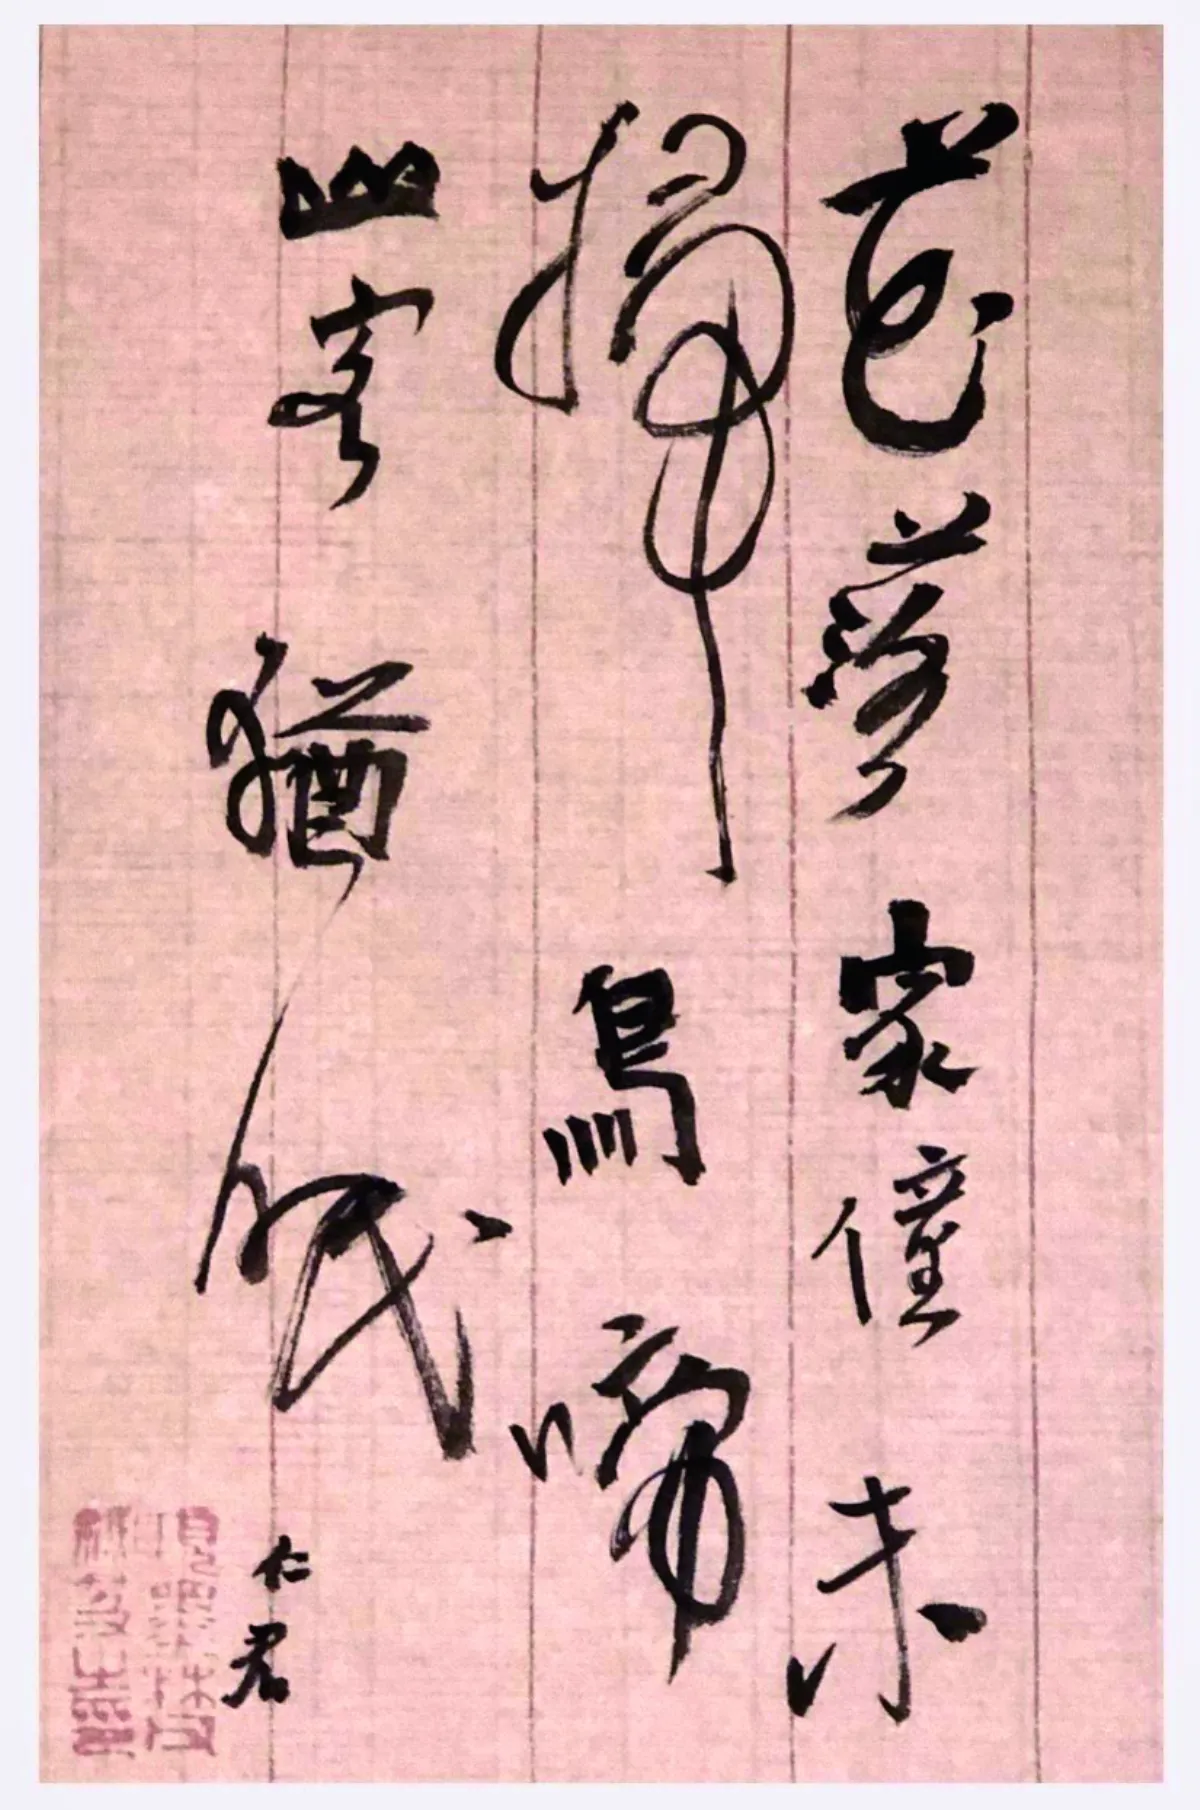 花落家僮未
掃鳥啼
山客猶眠
仁君